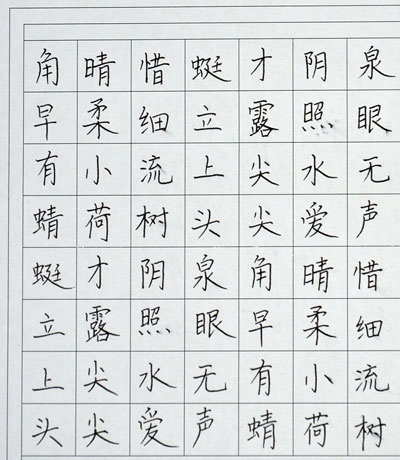 角晴惜蜓才阴泉
早柔细立露照眼
有小流上尖水无
蜻荷树头尖爱声
蜓才阴泉角晴惜
立露照眼早柔细
上尖水无有小流
头尖爱声蜻荷树